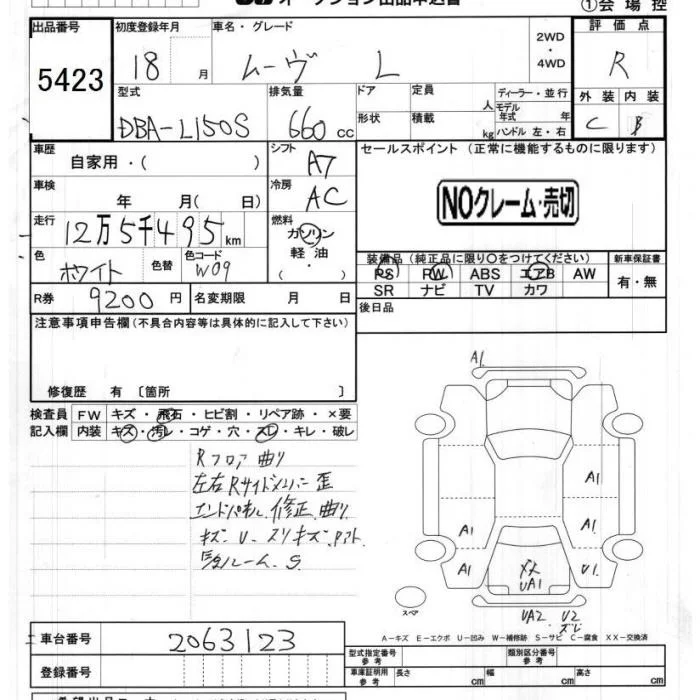 オークション出品申込書 ①会場控
出品番号 初度登録年月 車名・グレード 2WD・4WD 評価点
5423 18 月 ムーヴ L R
型式 排気量 ドア 定員 人 ディーラー・並行 外装 内装
DBA-L150S 660 cc 形状 積載 kg モデル年式 年 ハンドル 左・右 C B
車歴 シフト セールスポイント (正常に機能するものに限ります)
自家用・( ) A7
車検 冷房 NOクレーム・売切
年 月( 日) AC
走行 燃料
12万5千495km ガソリン
色 色替 色コード 軽油 装備品(純正品に限り〇をつけてください) 新車保証書
ホワイト W09 ・( ) PS PW ABS エアB AW 有・無
R券 9200円 名変期限 月 日 SR ナビ TV カワ
後日品
注意事項申告欄(不具合内容等は具体的に記入して下さい)
修復歴 有〔箇所 〕
検査員 FW キズ・飛石・ヒビ割・リペア跡・×要
記入欄 内装 キズ・汚レ・コゲ・穴・スレ・キレ・破レ
Rフロア曲り
左右Rサイドメンバー歪
エンドパネル修正、曲り
キズ U スリキズ
ルーム S
A1
A1
A1 A1
A1 XX UA1 U1
スペア UA2 U2
A-キズ E-エクボ U-凹み W-補修跡 S-サビ C-腐食 XX-交換済
車台番号 2063123
登録番号
型式指定番号 参考 類別区分番号 参考
車庫証明用 参考 長さ cm 幅 cm 高さ cm